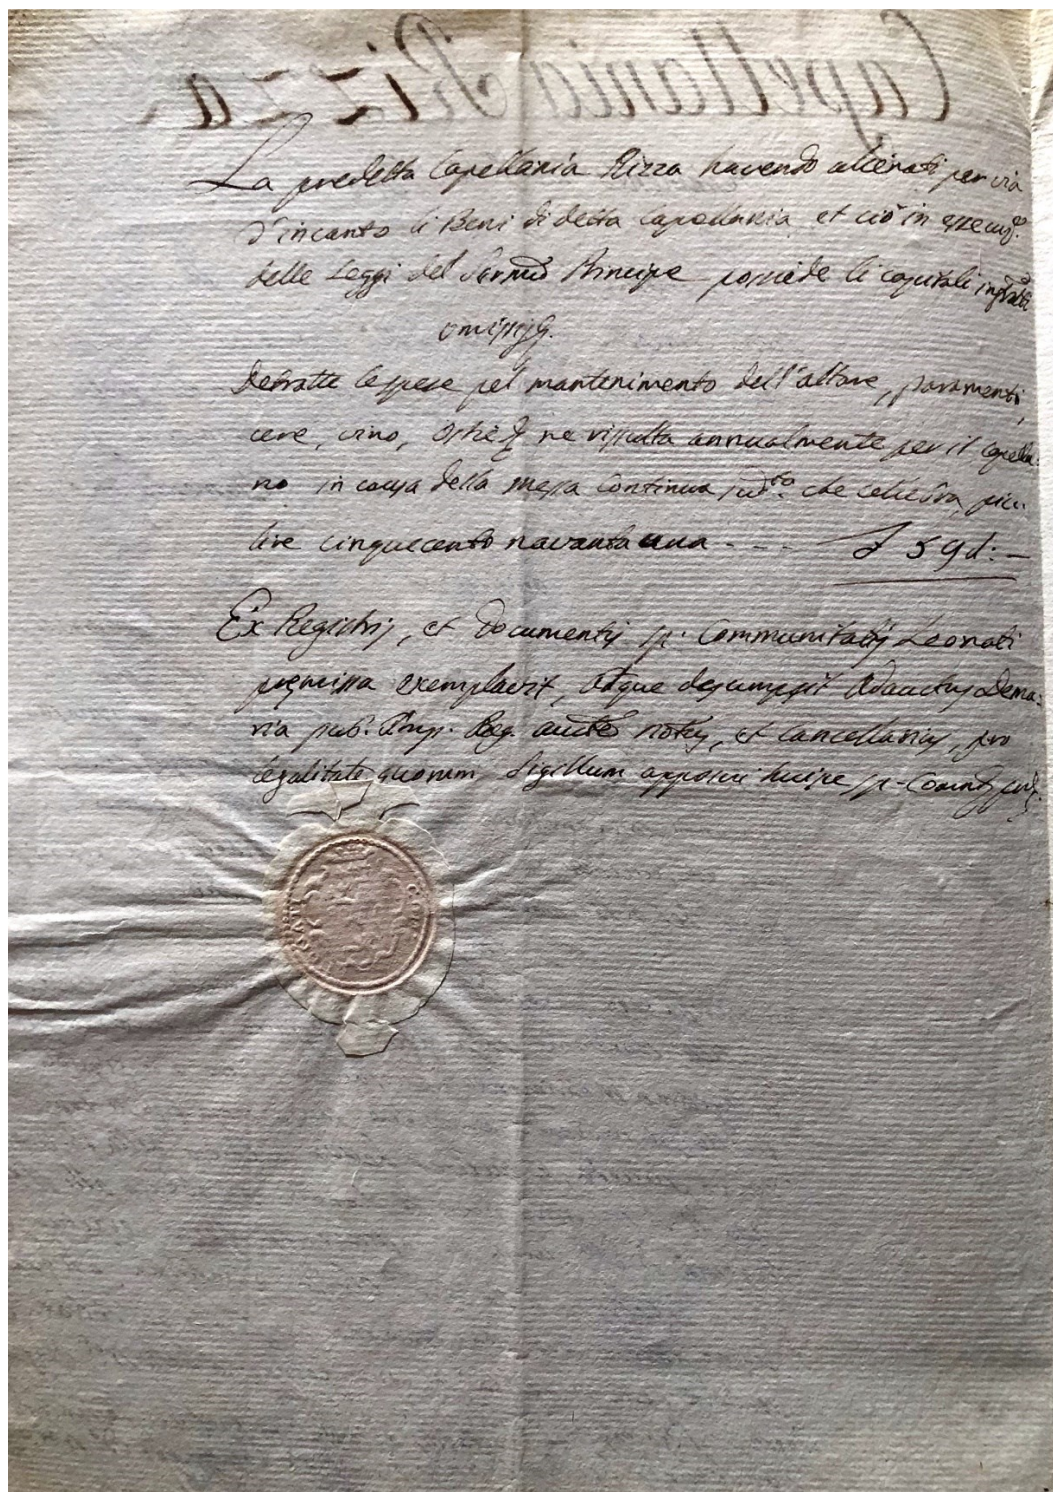 Capellania Rizza
La predetta Capellania Rizza havendo allienati per via
d'incanto li Beni di detta Capellania, et ciò in essecuz.e
delle Leggi del Ser.mo Principe possiede li capitali
omissis.
Detratte le spese pel mantenimento dell'altare, paramenti,
cere, vino, ostie ne rissulta annualmente per il Capella-
no in causa della messa continua sud.ta che cellebra, pic.
lire cinquecento navanta una - - - £ 591: -
Ex Registris, et documentis sp. Communitatis Leonati
premissa exemplavit, atque desumpsit Adauctus Dema-
ria pub. Imp. Reg. aucte notus, et cancellarius, pro
legalitate quorum sigillum apposui huius sp. Comunis